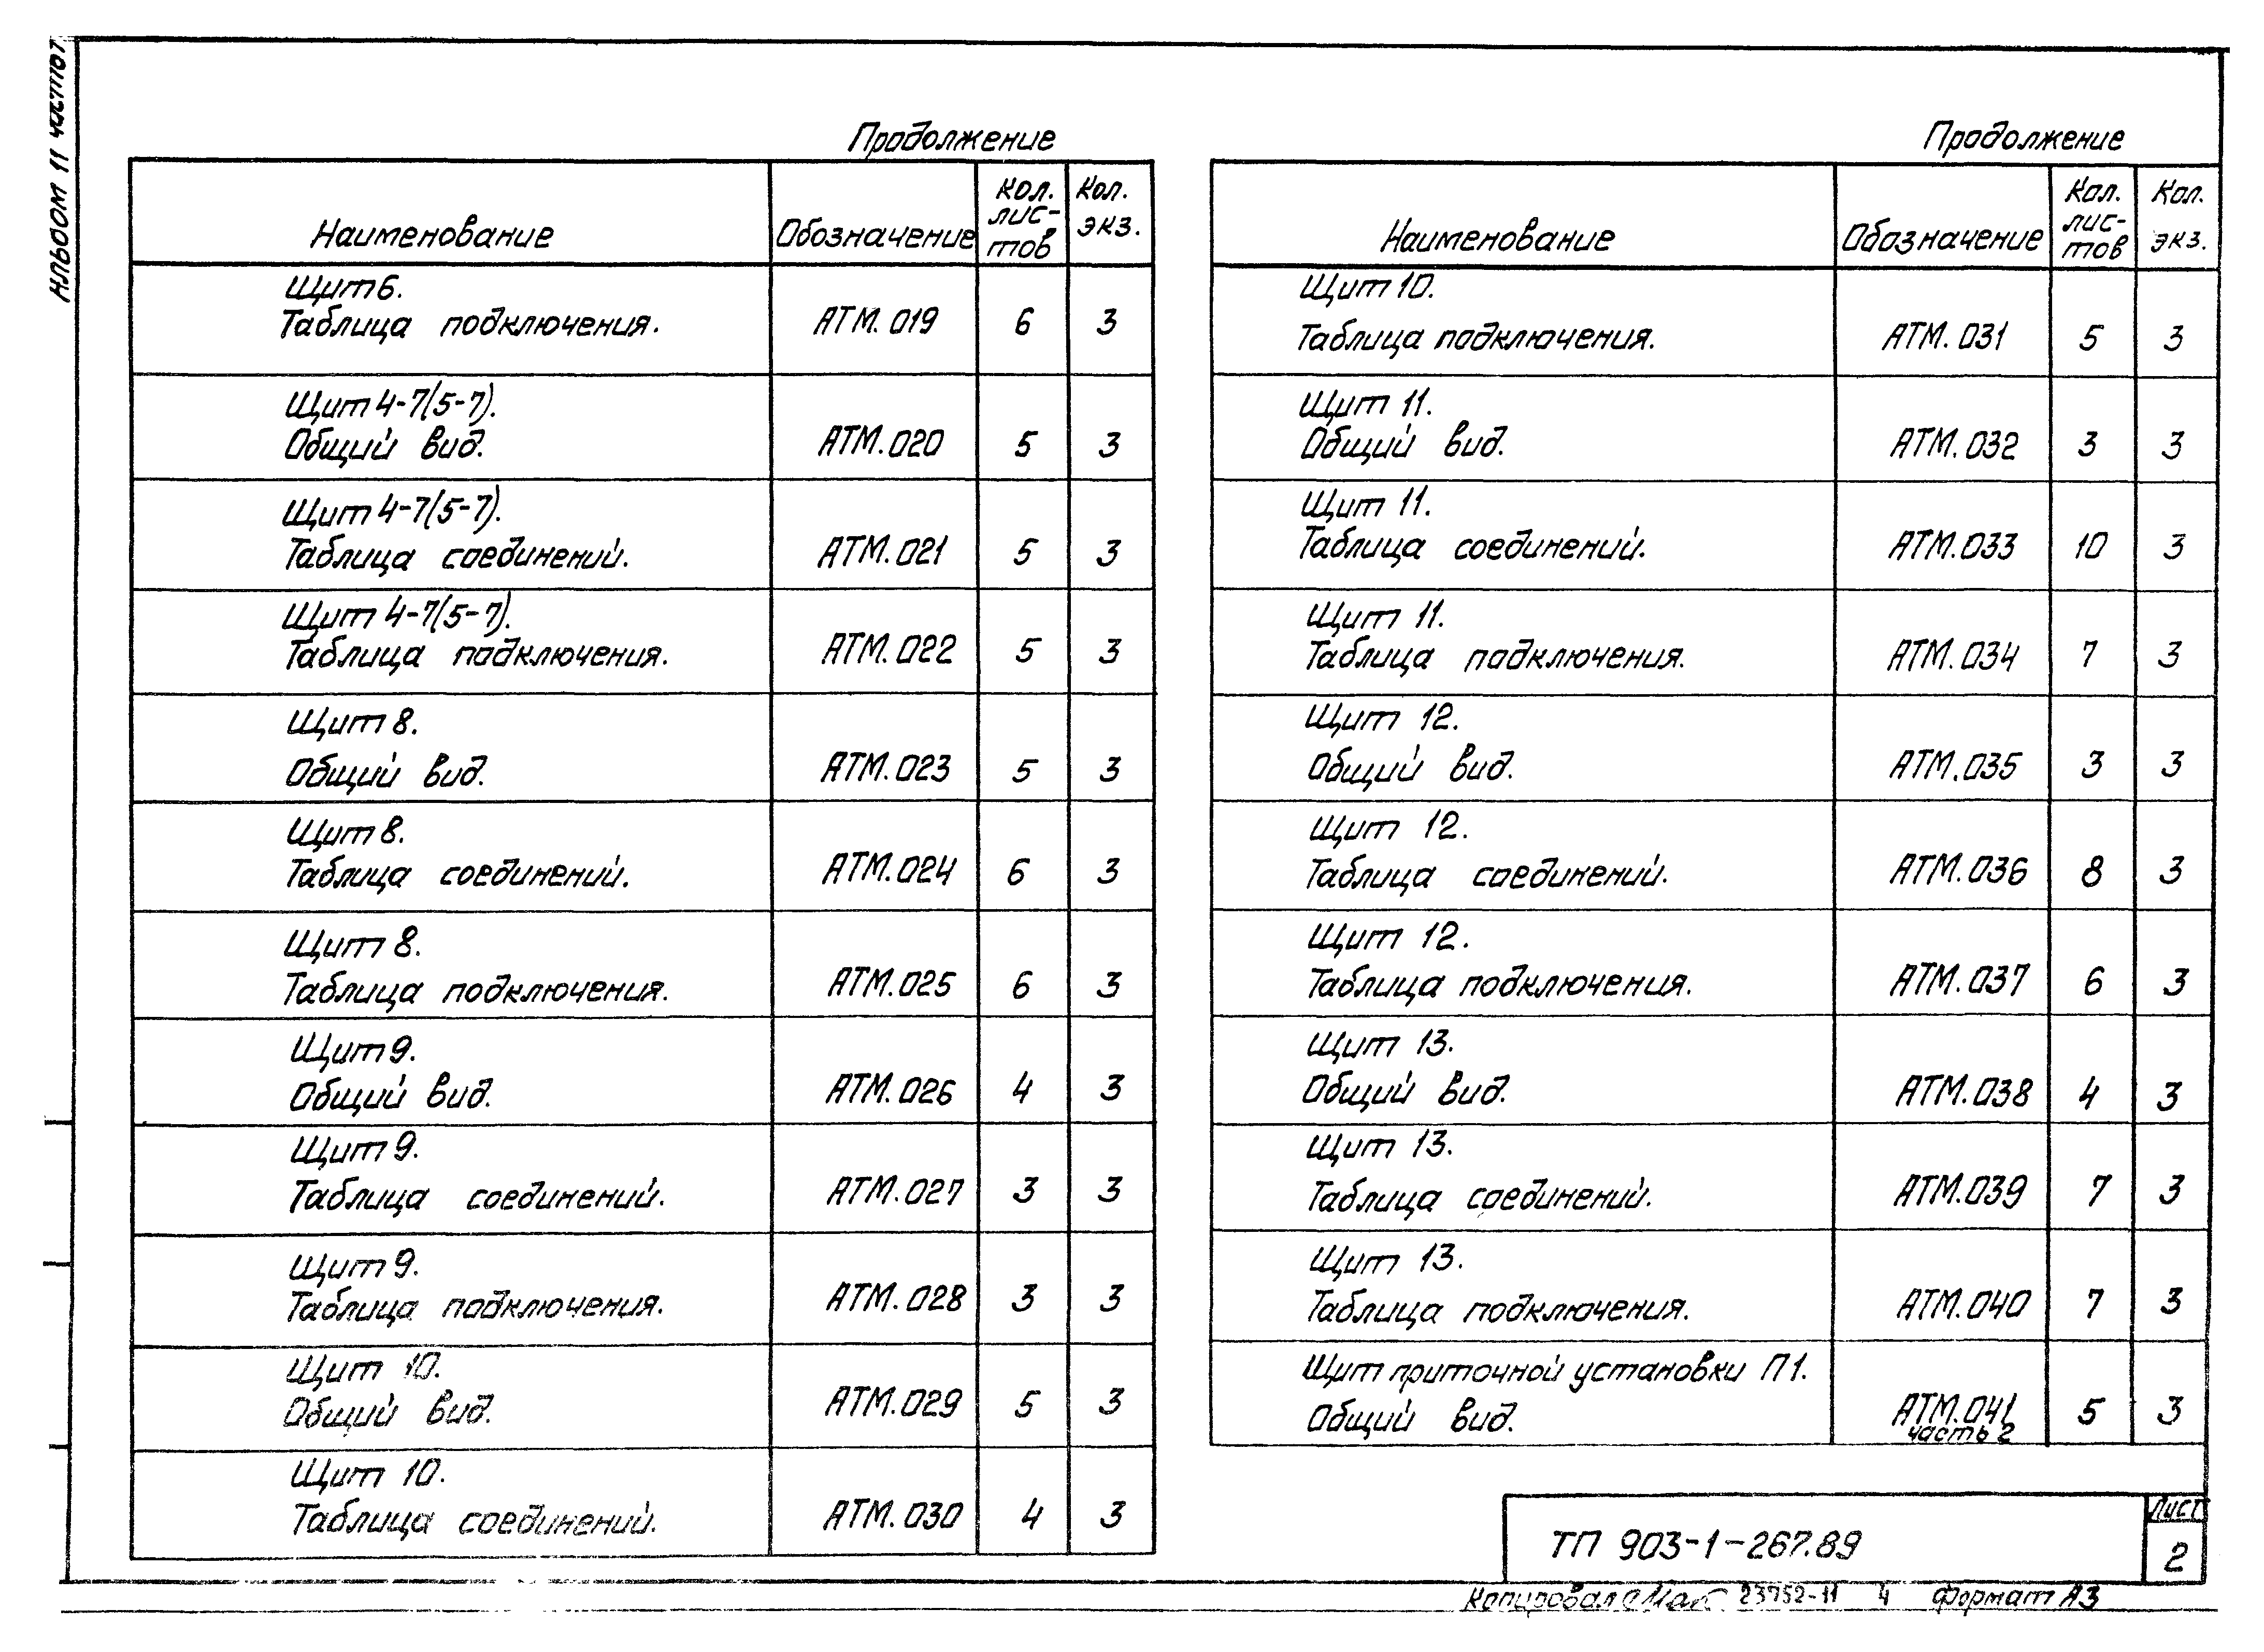 Альбом 11 часть 1
Продолжение
Наименование Обозначение Кол. лис- тов Кол. экз.
Щит 6.
Таблица подключения. АТМ.019 6 3
Щит 4-7(5-7).
Общий вид. АТМ.020 5 3
Щит 4-7(5-7).
Таблица соединений. АТМ.021 5 3
Щит 4-7(5-7).
Таблица подключения. АТМ.022 5 3
Щит 8.
Общий вид. АТМ.023 5 3
Щит 8.
Таблица соединений. АТМ.024 6 3
Щит 8.
Таблица подключения. АТМ.025 6 3
Щит 9.
Общий вид. АТМ.026 4 3
Щит 9.
Таблица соединений. АТМ.027 3 3
Щит 9.
Таблица подключения. АТМ.028 3 3
Щит 10.
Общий вид. АТМ.029 5 3
Щит 10.
Таблица соединений. АТМ.030 4 3
Продолжение
Наименование Обозначение Кол. лис- тов Кол. экз.
Щит 10.
Таблица подключения. АТМ.031 5 3
Щит 11.
Общий вид. АТМ.032 3 3
Щит 11.
Таблица соединений. АТМ.033 10 3
Щит 11.
Таблица подключения. АТМ.034 7 3
Щит 12.
Общий вид. АТМ.035 3 3
Щит 12.
Таблица соединений. АТМ.036 8 3
Щит 12.
Таблица подключения. АТМ.037 6 3
Щит 13.
Общий вид. АТМ.038 4 3
Щит 13.
Таблица соединений. АТМ.039 7 3
Щит 13.
Таблица подключения. АТМ.040 7 3
Щит приточной установки П1.
Общий вид. АТМ.041 5 3
часть 2
ТП 903-1-267.89
Лист
2
Копировал 23752-11 4 Формат А3